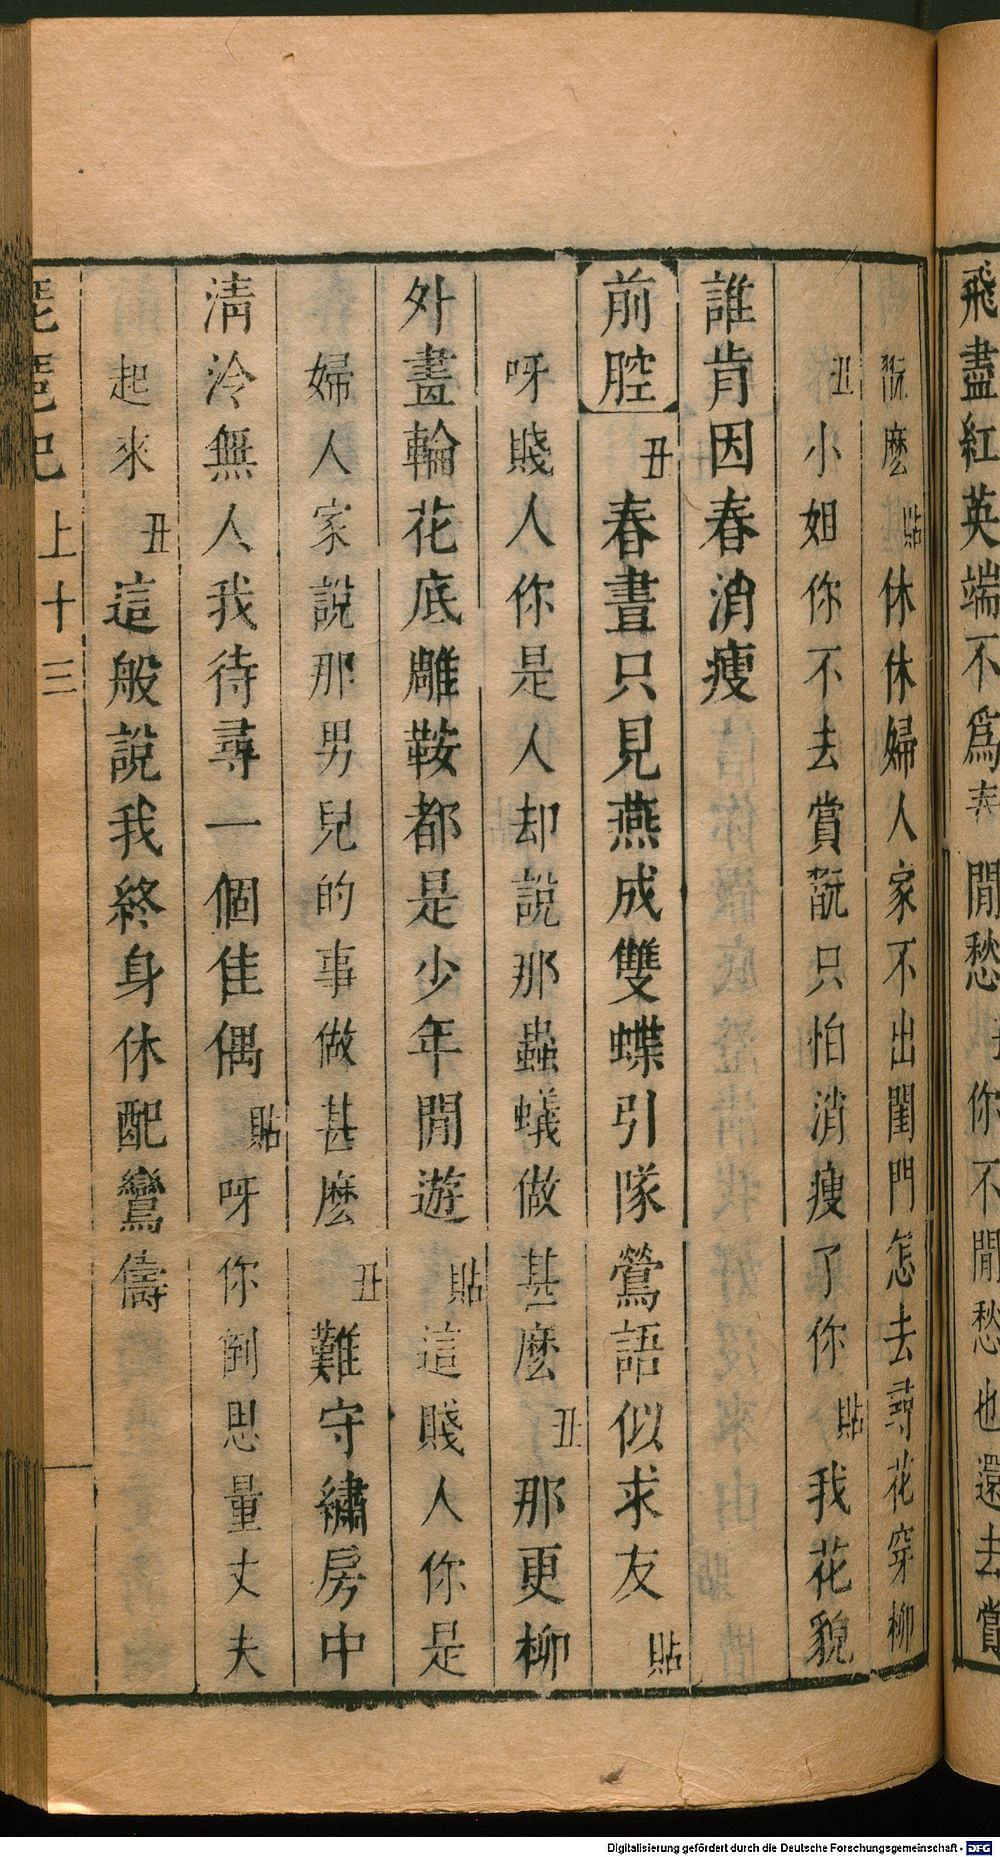 飛盡紅英端不為春閒愁 丑 你不閒愁也還去賞
翫麼 貼 休休婦人家不出閨門怎去尋花穿柳
丑 小姐你不去賞翫只怕消瘦了你 貼 我花貌
誰肯因春消瘦
前腔 丑 春晝只見燕成雙蝶引隊鶯語似求友 貼
呀賤人你是人却說那蟲蟻做甚麼 丑 那更柳
外畫輪花底雕鞍都是少年閒遊 貼 這賤人你是
婦人家說那男兒的事做甚麼 丑 難守繡房中
清冷無人我待尋一個佳偶 貼 呀你倒思量丈夫
起來 丑 這般說我終身休配鸞儔
琵琶記 上 十三
Digitalisierung gefördert durch die Deutsche Forschungsgemeinschaft - DFG